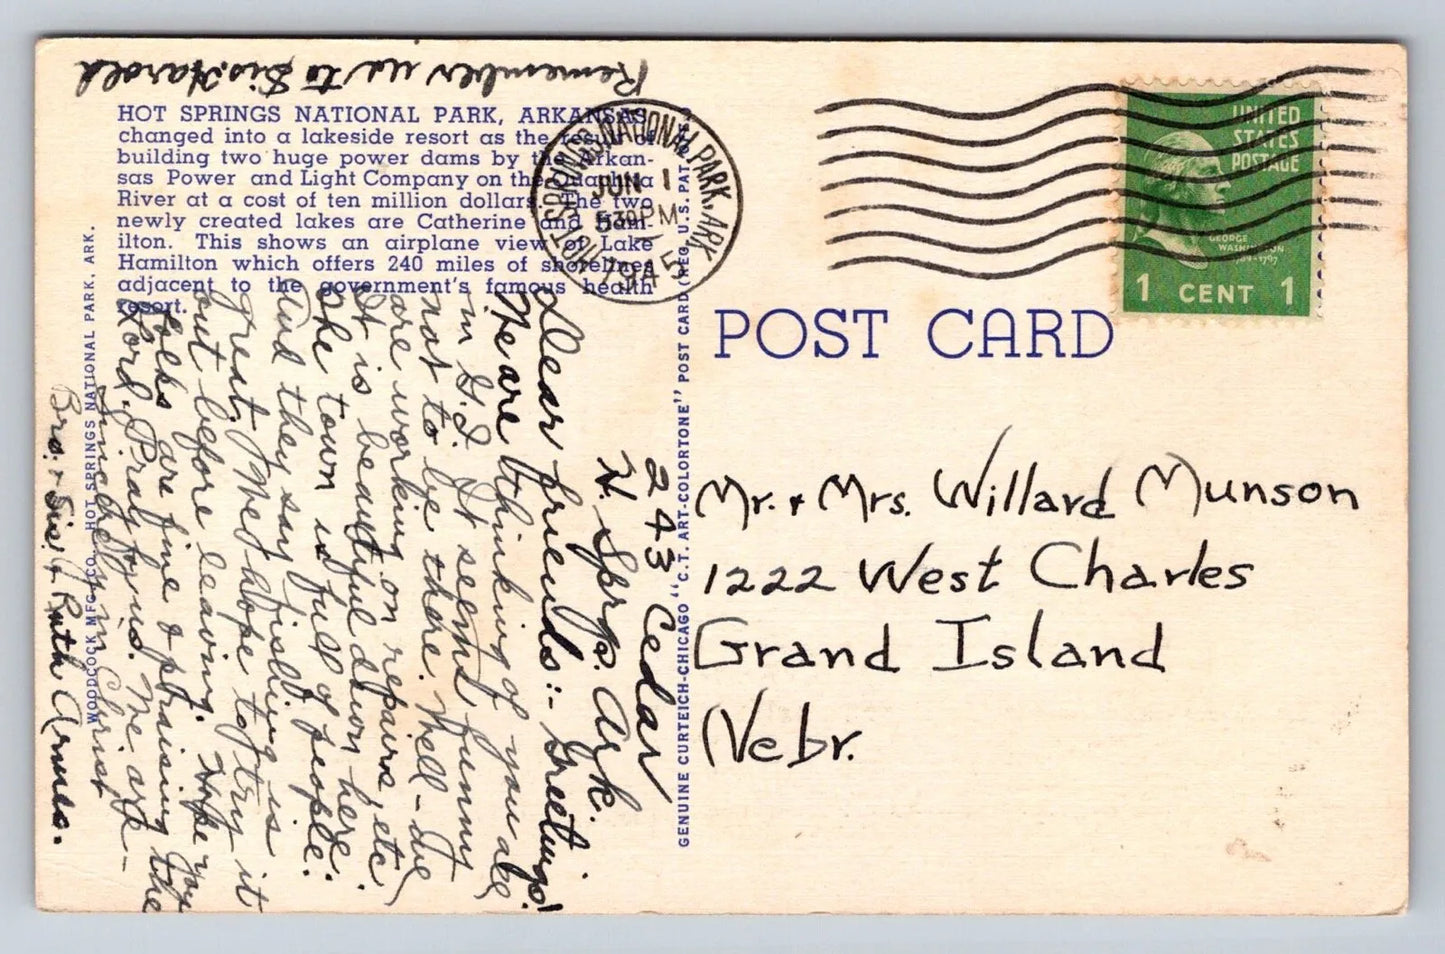 Remember us to Sis. Harold
HOT SPRINGS NATIONAL PARK, ARKANSAS
changed into a lakeside resort as the result of
building two huge power dams by the Arkan-
sas Power and Light Company on the Ouachita
River at a cost of ten million dollars. The two
newly created lakes are Catherine and Ham-
ilton. This shows an airplane view of Lake
Hamilton which offers 240 miles of shorelines
adjacent to the government's famous health
resort.
WOODCOCK MFG. CO., HOT SPRINGS NATIONAL PARK, ARK.
243 Cedar
H. Sprgs. Ark.
Dear friends:- Greetings!
We are thinking of you all
in G.I. It seems funny
not to be there. Well - we
are working on repairs, etc.
It is beautiful down here.
The town is full of people.
And they say fishing is
great. Wed hope to try it
out before leaving. Hope you
folks are fine & praising the
Lord. Pray for us. We are -
Sincerely in Christ
Bro. + Sis. + Ruth
GENUINE CURTEICH-CHICAGO "C.T. ART-COLORTONE" POST CARD (REG. U.S. PAT.
HOT SPRINGS NATIONAL PARK, ARK
JUN 1
530 PM
1945
UNITED
STATES
POSTAGE
GEORGE
WASHINGTON
1789-1797
1 CENT 1
POST CARD
Mr. + Mrs. Willard Munson
1222 West Charles
Grand Island
Nebr.